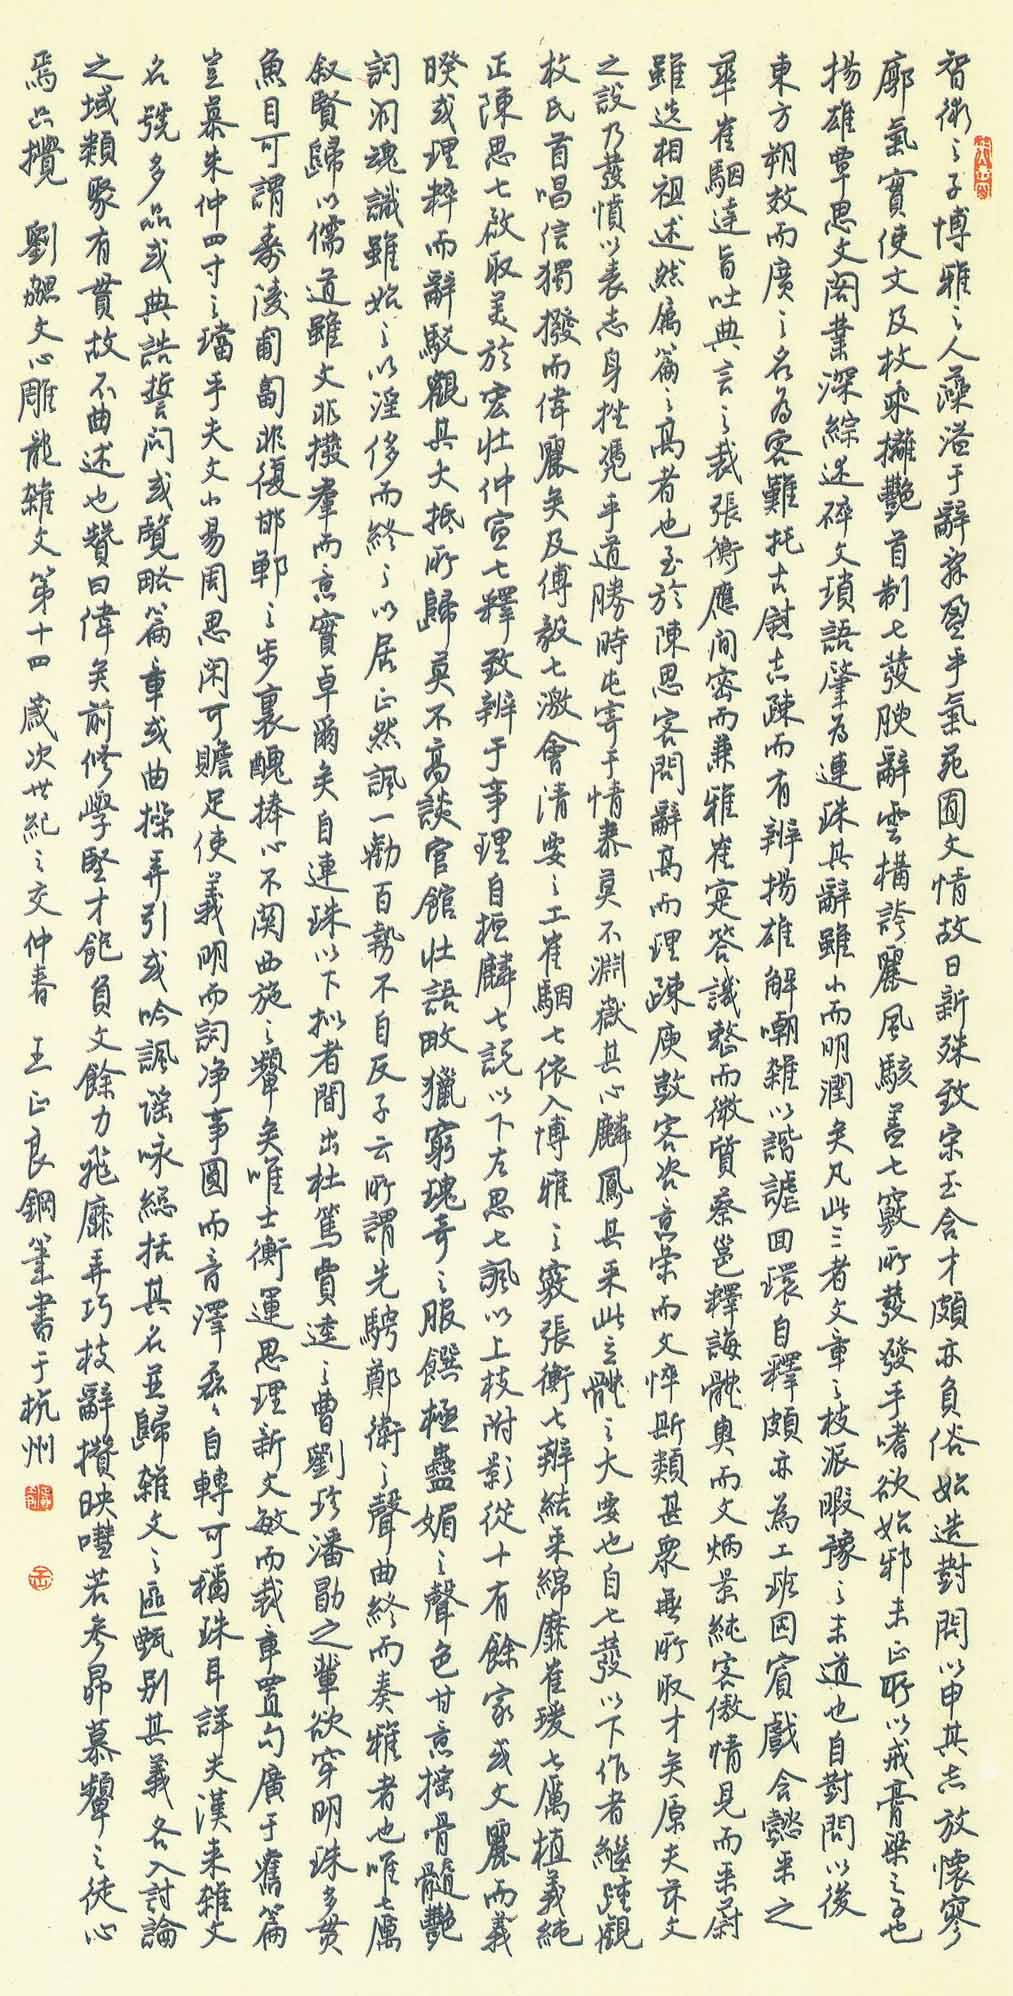 智術之子博雅之人藻溢于辭辭盈乎氣苑囿文情故日新殊致宋玉含才頗亦負俗始造對問以申其志放懷寥
廓氣實使文及枚乘攡艷首制七發腴辭雲構誇麗風駭蓋七竅所發發乎嗜欲始邪末正所以戒膏粱之子也
揚雄覃思文闊業深綜述碎文瑣語肇為連珠其辭雖小而明潤矣凡此三者文章之枝派暇豫之末造也自對問以後
東方朔效而廣之名為客難托古慰志疎而有辨揚雄解嘲雜以諧謔回環自釋頗亦為工班固賓戲含懿采之
華崔駰達旨吐典言之裁張衡應間密而兼雅崔寔答譏整而微質蔡邕釋誨體奧而文炳景純客傲情見而采蔚
雖迭相祖述然屬篇之高者也至於陳思客問辭高而理疎庾敳客咨意榮而文悴斯類甚眾無所取才矣原夫茲文
之設乃發憤以表志身挫憑乎道勝時屯寄于情泰莫不淵嶽其心麟鳳其采此立體之大要也自七發以下作者繼踵觀
枚氏首唱信獨撥而偉麗矣及傅毅七激會清要之工崔駰七依入博雅之竅張衡七辨結采綿靡崔瑗七厲植義純
正陳思七啟取美於宏壯仲宣七釋致辨于事理自桓麟七説以下左思七諷以上枝附影從十有餘家或文麗而義
暌或理粹而辭駁觀其大抵所歸莫不高談官館壯語畋獵窮瑰奇之服饌極蠱媚之聲色甘意搖骨髓艷
詞洞魂識雖始之以淫侈而終之以居正然諷一勸百勢不自反子云所謂先騁鄭衛之聲曲終而奏雅者也唯七厲
叙賢歸以儒道雖文非拔羣而意實卓爾矣自連珠以下拟者間出杜篤賈逵之曹劉珍潘勖之輩欲穿明珠多貫
魚目可謂壽陵匍匐非復邯鄲之步裏醜捧心不関西施之顰矣唯士衡運思理新文敏而裁章置勾廣于舊篇
豈慕朱仲四寸之璫乎夫文小易周思閑可贍足使義明而詞净事圓而音澤磊磊自轉可稱珠耳詳夫漢来雜文
名號多品或典誥誓問或覽略篇章或曲操弄引或吟諷謡咏總括其名並歸雜文之區甄别其義各入討論
之域類聚有貫故不曲述也贊曰偉矣前修學堅才飽負文餘力飛靡弄巧枝辭攢映嘒若參昴慕顰之徒心
焉只攪　劉勰文心雕龍雜文第十四　歲次世紀之交仲春　王正良鋼筆書于杭州